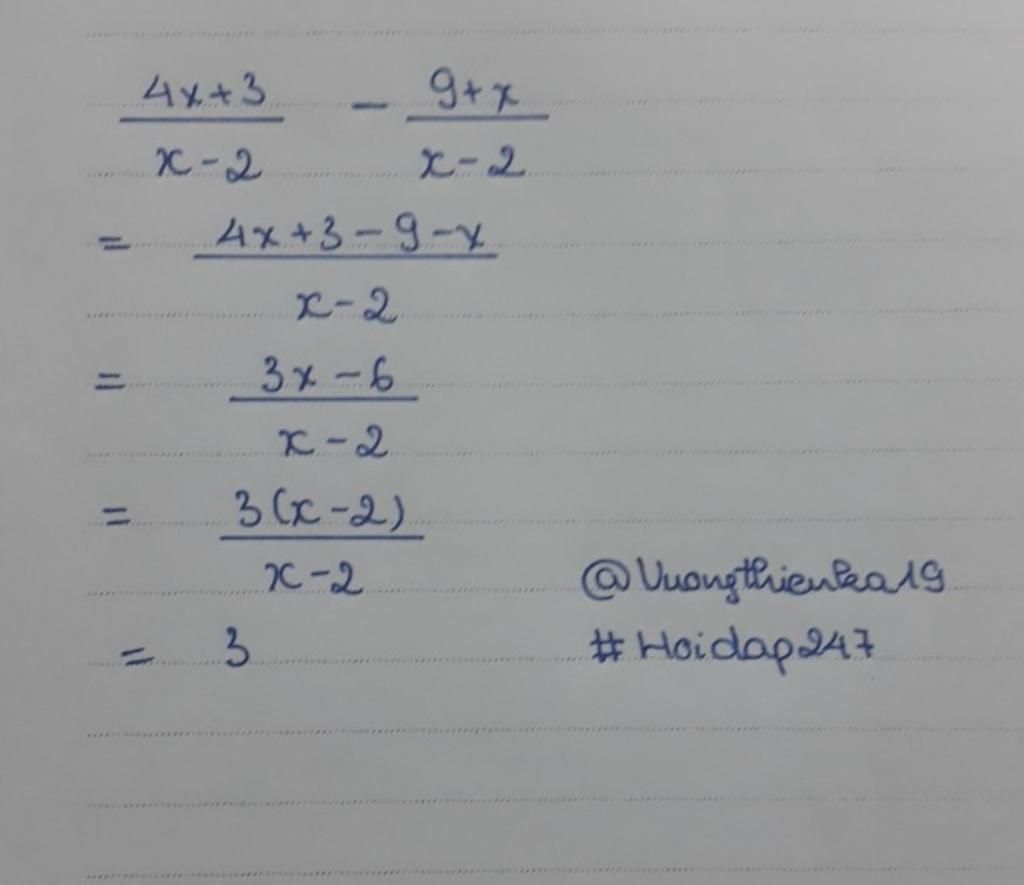 (4x+3)/(x-2) - (9+x)/(x-2)
= (4x+3-9-x)/(x-2)
= (3x-6)/(x-2)
= (3(x-2))/(x-2)
@Vuongthienka19
= 3
#Hoidap247